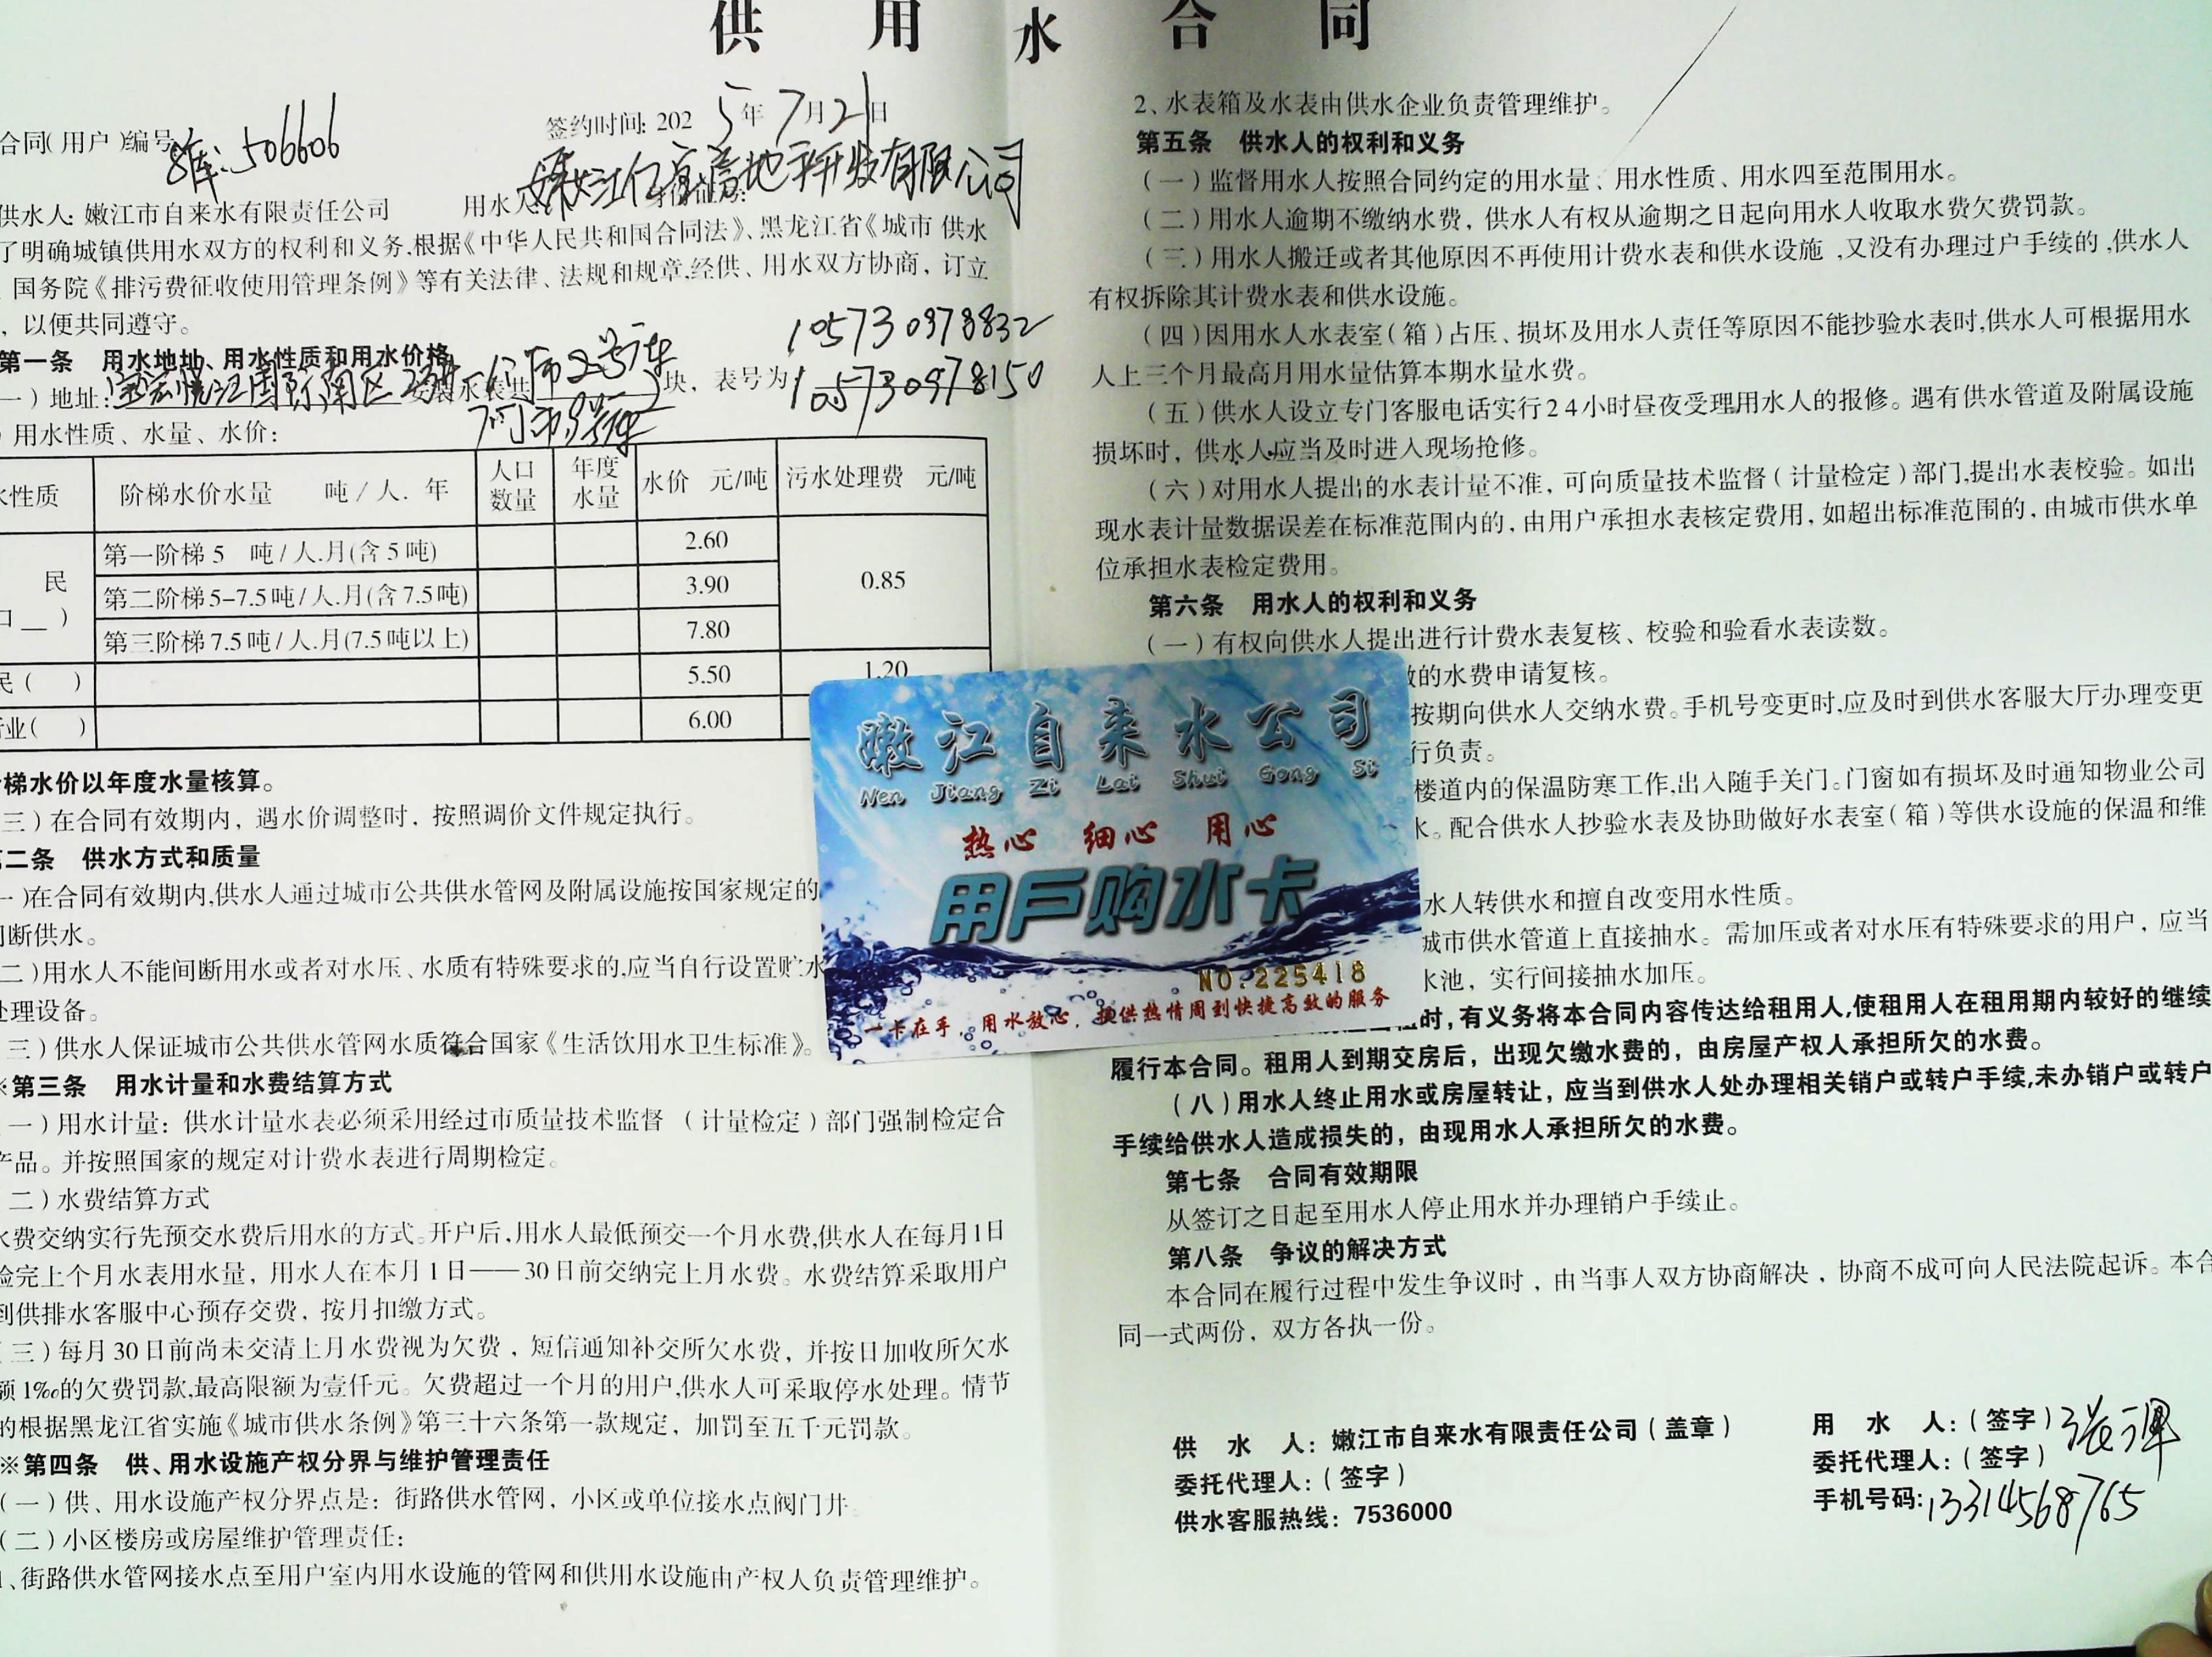 供用水合同
合同(用户)编号 8库:506606
签约时间: 2025年7月21日
供水人: 嫩江市自来水有限责任公司 用水人: 房地产开发有限公司
了明确城镇供用水双方的权利和义务,根据《中华人民共和国合同法》、黑龙江省《城市 供水
国务院《排污费征收使用管理条例》等有关法律、法规和规章,经供、用水双方协商, 订立
, 以便共同遵守。
第一条 用水地址、用水性质和用水价格
一)地址: 江国际南区 安装水表共 2块, 表号为
105730978832
105730978150
)用水性质、水量、水价:
水性质 阶梯水价水量 吨/人. 年 人口数量 年度水量 水价 元/吨 污水处理费 元/吨
民
口__)
第一阶梯 5 吨/人.月(含 5 吨) 2.60
第二阶梯 5-7.5 吨/人.月(含 7.5 吨) 3.90 0.85
第三阶梯 7.5 吨/人.月(7.5 吨以上) 7.80
民( ) 5.50 1.20
行业( ) 6.00
梯水价以年度水量核算。
三)在合同有效期内, 遇水价调整时, 按照调价文件规定执行。
第二条 供水方式和质量
一)在合同有效期内,供水人通过城市公共供水管网及附属设施按国家规定的
间断供水。
二)用水人不能间断用水或者对水压、水质有特殊要求的,应当自行设置贮水
处理设备。
三)供水人保证城市公共供水管网水质符合国家《生活饮用水卫生标准》。
※第三条 用水计量和水费结算方式
一)用水计量: 供水计量水表必须采用经过市质量技术监督 (计量检定)部门强制检定合
产品。并按照国家的规定对计费水表进行周期检定。
二)水费结算方式
水费交纳实行先预交水费后用水的方式。开户后,用水人最低预交一个月水费,供水人在每月1日
验完上个月水表用水量, 用水人在本月 1 日——30 日前交纳完上月水费。水费结算采取用户
到供排水客服中心预存交费, 按月扣缴方式。
(三)每月 30 日前尚未交清上月水费视为欠费, 短信通知补交所欠水费, 并按日加收所欠水
额 1‰的欠费罚款,最高限额为壹仟元。欠费超过一个月的用户,供水人可采取停水处理。情节
的根据黑龙江省实施《城市供水条例》第三十六条第一款规定, 加罚至五千元罚款。
※第四条 供、用水设施产权分界与维护管理责任
(一)供、用水设施产权分界点是: 街路供水管网, 小区或单位接水点阀门井
(二)小区楼房或房屋维护管理责任:
1、街路供水管网接水点至用户室内用水设施的管网和供用水设施由产权人负责管理维护。
2、水表箱及水表由供水企业负责管理维护。
第五条 供水人的权利和义务
(一)监督用水人按照合同约定的用水量、用水性质、用水四至范围用水。
(二)用水人逾期不缴纳水费, 供水人有权从逾期之日起向用水人收取水费欠费罚款。
(三)用水人搬迁或者其他原因不再使用计费水表和供水设施 ,又没有办理过户手续的 ,供水人
有权拆除其计费水表和供水设施。
(四)因用水人水表室(箱)占压、损坏及用水人责任等原因不能抄验水表时,供水人可根据用水
人上三个月最高月用水量估算本期水量水费。
(五)供水人设立专门客服电话实行24小时昼夜受理用水人的报修。遇有供水管道及附属设施
损坏时, 供水人应当及时进入现场抢修。
(六)对用水人提出的水表计量不准, 可向质量技术监督(计量检定)部门,提出水表校验。如出
现水表计量数据误差在标准范围内的, 由用户承担水表核定费用, 如超出标准范围的, 由城市供水单
位承担水表检定费用。
第六条 用水人的权利和义务
(一)有权向供水人提出进行计费水表复核、校验和验看水表读数。
的水费申请复核。
按期向供水人交纳水费。手机号变更时,应及时到供水客服大厅办理变更
行负责。
楼道内的保温防寒工作,出入随手关门。门窗如有损坏及时通知物业公司
水。配合供水人抄验水表及协助做好水表室(箱)等供水设施的保温和维
水人转供水和擅自改变用水性质。
城市供水管道上直接抽水。需加压或者对水压有特殊要求的用户, 应当
水池, 实行间接抽水加压。
时, 有义务将本合同内容传达给租用人,使租用人在租用期内较好的继续
履行本合同。租用人到期交房后, 出现欠缴水费的, 由房屋产权人承担所欠的水费。
(八)用水人终止用水或房屋转让, 应当到供水人处办理相关销户或转户手续,未办销户或转户
手续给供水人造成损失的, 由现用水人承担所欠的水费。
第七条 合同有效期限
从签订之日起至用水人停止用水并办理销户手续止。
第八条 争议的解决方式
本合同在履行过程中发生争议时, 由当事人双方协商解决, 协商不成可向人民法院起诉。本合
同一式两份, 双方各执一份。
供 水 人: 嫩江市自来水有限责任公司(盖章)
委托代理人:(签字)
供水客服热线: 7536000
用 水 人:(签字)
委托代理人:(签字)
手机号码: 13314568765
嫩江自来水公司
Nen Jiang Zi Lai Shui Gong Si
热心 细心 用心
用户购水卡
NO:225418
一卡在手, 用水放心, 提供热情周到快捷高效的服务